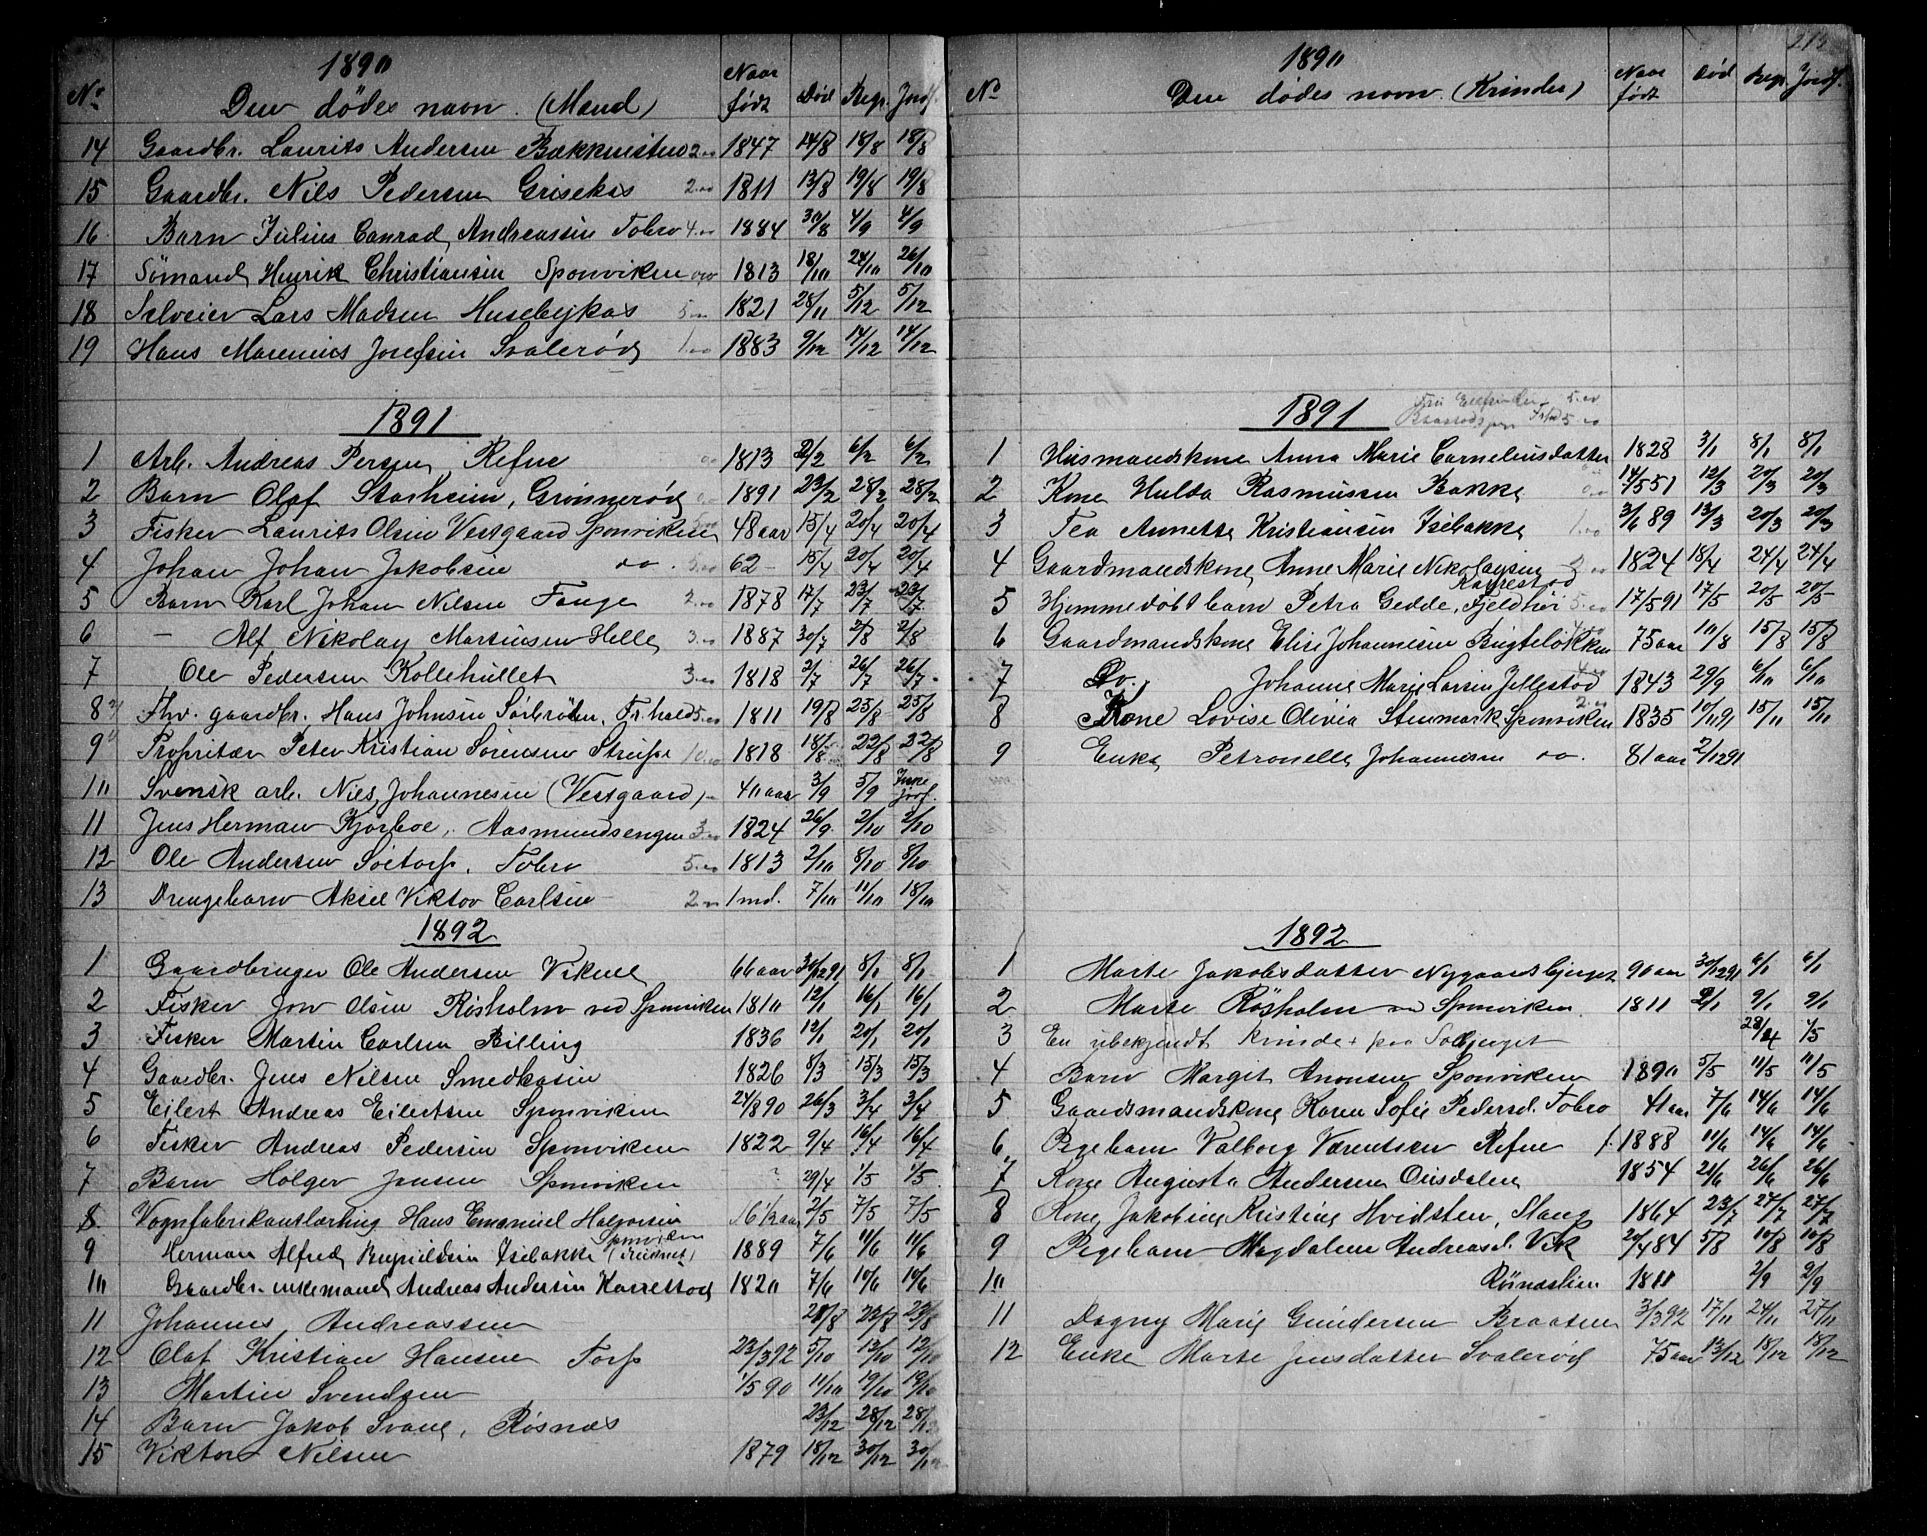 1890
No Den dødes navn. (Mand) Naar født Död Begr. Jordf.
14 Gaardbr. Laurits Andersen 2.00 1847 14/8 18/8 18/8
15 Gaardbr. Nils Pedersen Grisekas 2.00 1811 13/8 19/8 19/8
16 Barn Julius Conrad Andreassen Tobro 4.00 1884 30/8 4/9 4/9
17 Sömand Henrik Christiansen Sponviken 1813 18/10 24/10 26/10
18 Selveier Lars Madsen Husebykas 5.00 1821 28/11 5/12 5/12
19 Hans Marenius Josefsen Svalerød 1.00 1883 9/12 14/12 14/12
1891
1 Arb. Andreas Persen, Refne 1813 2/2 6/2 6/2
2 Barn Olaf Storheim, Grønnerød 1891 23/2 28/2 28/2
3 Fisker Laurits Olsen Vestgaard Sponviken 48 aar 15/4 20/4 20/4
4 Johan Johan Jakobsen do. 5.00 62 - 15/4 20/4 20/4
5 Barn Karl Johan Nilsen Fange 2.00 1878 17/7 23/7 23/7
6 - Alf Nikolay Martinsen Helle 3.00 1887 30/7 2/8 2/8
7 Ole Pedersen Kollehullet 3.00 1818 2/7 26/7 26/7
8 Fhv. gaardbr. Hans Johnsen Sörbröden, Fr.hald 5.00 1811 19/8 25/8 25/8
9 Propritær Peter Kristian Sørensen 10.00 1818 18/8 22/8 22/8
10 Svensk arb. Nils Johannesen (Vestgaard) - 40 aar 3/9 5/9 Ikke jordf.
11 Jens Herman Kjørboe, Aasmundsengen 3.00 1824 26/9 2/10 2/10
12 Ole Andersen Soetorp, Tobro 5.00 1813 2/10 8/10 8/10
13 Drengebarn Aksel Viktor Carlsen 2.00 1 md. 7/10 11/10 18/10
1892
1 Gaardbruger Ole Andersen Vikene 66 aar 30/1291 8/1 8/1
2 Fisker Jon Olsen Røsholm ved Sponviken 1810 12/1 16/1 16/1
3 Fisker Martin Carlsen Billing 1836 12/1 20/1 20/1
4 Gaardbr. Jens Nilsen Smedkasen 1826 8/3 15/3 15/3
5 Eilert Andreas Eilertsen Sponviken 24/890 26/3 3/4 3/4
6 Fisker Andreas Pedersen Sponviken 1822 9/4 16/4 16/4
7 Barn Holger Jensen Sponviken ? 29/4 1/5 1/5
8 Vognfabrikantlærling Hans Emanuel Halvorsen Sponviken 16 1/2 aar 2/5 7/5 7/5
9 Herman Alfred Isebakke (druknet) 1889 7/6 11/6 11/6
10 Gaardbr. enkemand Andreas Andersen Karrestod 1820 7/6 10/6 10/6
11 Johannes Andreassen 28/8 23/8 23/8
12 Olaf Kristian Hansen Torp 23/392 5/10 13/10 12/10
13 Martin Svendsen 1/590 11/10 19/10 19/10
14 Barn Jakob Svane, Røsnæs 23/12 28/12 28/12
15 Viktor Nilsen 1879 18/12 30/12 30/12
1890
No Den dødes navn. (Kvinder) Naar født Död Begr. Jordf.
1891
5.00
5.00
1 Husmandskone Anna Marie Corneliusdatter 1828 3/1 8/1 8/1
2 Kone Hulda Rasmussen Bakke 14/551 12/3 20/3 20/3
3 Tea Annette Kristiansen Isebakke 1.00 3/689 13/3 20/3 20/3
4 Gaardmandskone Anne Marie Nikolaysen Karrestod 1824 18/4 24/4 24/4
5 Hjemmedøbt barn Petra Gedde, Fjeldhøi 5.00 17/591 17/5 20/5 20/5
6 Gaardmandskone Elise Johannesen Bugteløkken 75 aar 10/8 15/8 15/8
7 Do. Johanne Marie Larsen Jellestod 1843 29/9 6/10 6/10
8 Kone Lovise Olivia Stenmark Sponviken 2.00 1835 10/1191 15/11 15/11
9 Enke Petronelle Johannesen do. 81 aar 2/1291
1892
1 Marte Jakobsdatter Nygaardsbjerget 90 aar 30/1291 6/1 6/1
2 Marte Røsholm ved Sponviken. 1811 2/1 9/1 9/1
3 En ubekjendt Kvinde paa 28/4 1/5
4 Barn Margit Anonsen Sponviken 1890 5/5 11/5 11/5
5 Gaardsmandskone Karen Sofie Pedersd. Tobro 41 aar 7/6 14/6 14/6
6 Pigebarn Valborg Værentsen Refne 1888 11/6 14/6 14/6
7 Kone Augusta Andersen Ousdalen 1854 21/6 26/6 26/6
8 Kone Jakobine Kristine Hvidsten, Stang 1864 23/7 27/7 27/7
9 Pigebarn Magdalene Andreasd. Vik 20/484 5/8 10/8 10/8
10 Röinaslien 1811 2/9 2/9
11 Dagny Marie Gundersen Braaten 3/392 17/11 24/11 27/11
12 Enke Marte Jensdatter Svalerød 75 aar 13/12 18/12 18/12